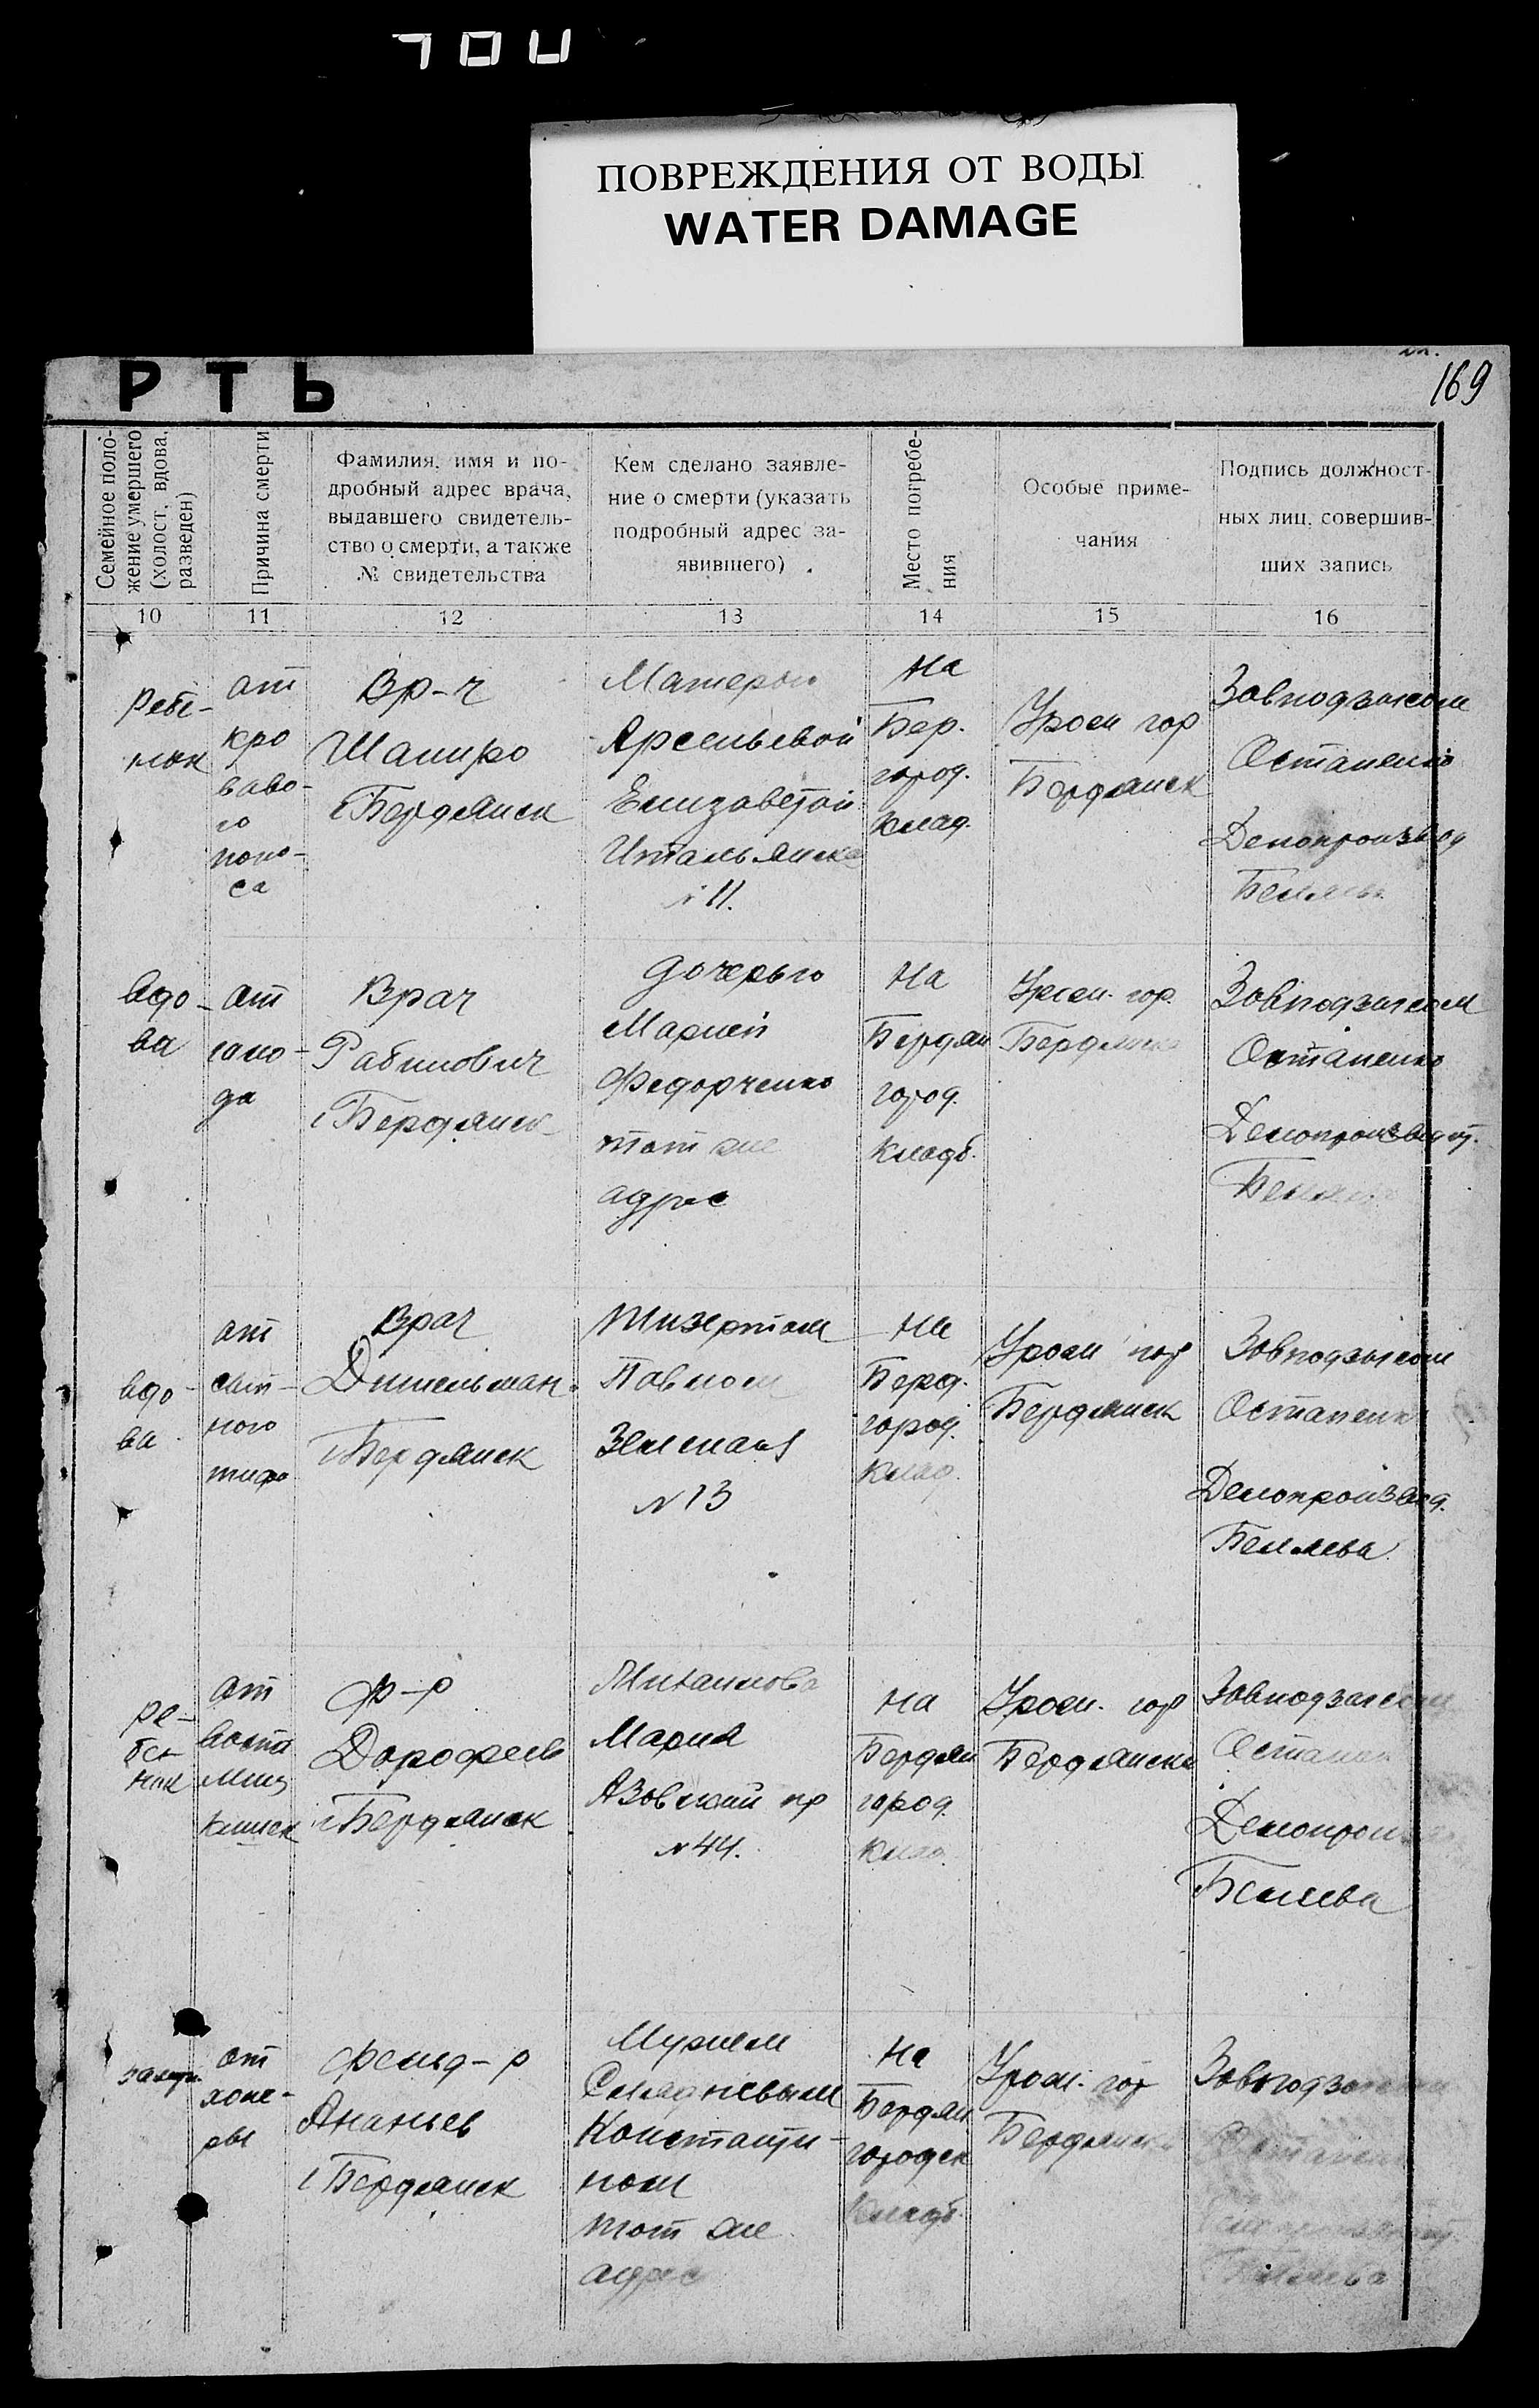 ПОВРЕЖДЕНИЯ ОТ ВОДЫ
WATER DAMAGE
169
РТЬ
Семейное поло-
жение умершего
(холост, вдова,
разведен)
Причина смерти
Фамилия, имя и по-
дробный адрес врача,
выдавшего свидетель-
ство о смерти, а также
№ свидетельства
Кем сделано заявле-
ние о смерти (указать
подробный адрес за-
явившего)
Место погребе-
ния
Особые приме-
чания
Подпись должност-
ных лиц, совершив-
ших запись
10
11
12
13
14
15
16
Ребе-
нок
от
кро
ваво-
го
поно-
са
Вр-ч
Шапиро
г Бердянск
Матерью
Арсеньевой
Елизаветой
Итальянска
№ 11.
На
Бер.
город.
клад.
Урож гор
Бердянск
Завподзагсом
Остапенко
Делопроизвод
Беляева
Вдо-
ва
от
голо-
да
Врач
Рабинович
г Бердянск
Дочерью
Марией
Федорченко
тот же
адрес
На
Бердян
город.
кладб.
Урож. гор.
Бердянска
Завподзагсом
Остапенко
Делопроизводит.
Беляева
вдо-
ва
от
сып-
ного
тифа
Врач
Дительман.
г Бердянск
Павлом
Земская
№ 13
На
Берд.
город.
клад.
Урож гор
Бердянск
Завподзагсом
Остапенк
Делопроизвод.
Беляева
Ре-
бен
нок
от
кишек
Ф-р
Дорофеев
г Бердянск
Михайлова
Мария
Азовский пр
№ 44.
На
Бердян
город.
клад.
Урож. гор
Бердянска
Завподзагсом
Остапен
Делопроизв
Беляева
замуж.
от
холе-
ры
Фельд-р
Ананьев
г Бердянск
Мужем
Константи-
ном
тот же
адрес
На
Бердян
городск
кладб.
Урож. гор
Бердянска
Завподзагсом
Остапенко
Беляева